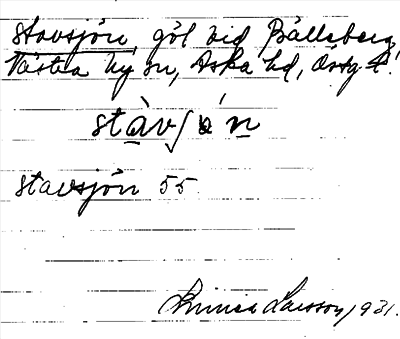 Stavsjön, göl vid Bålleberg,
Västra Ny sn, Aska hd, Östg l.
stàvʃǿn
Stavsjön 55
Larsson, 1931.